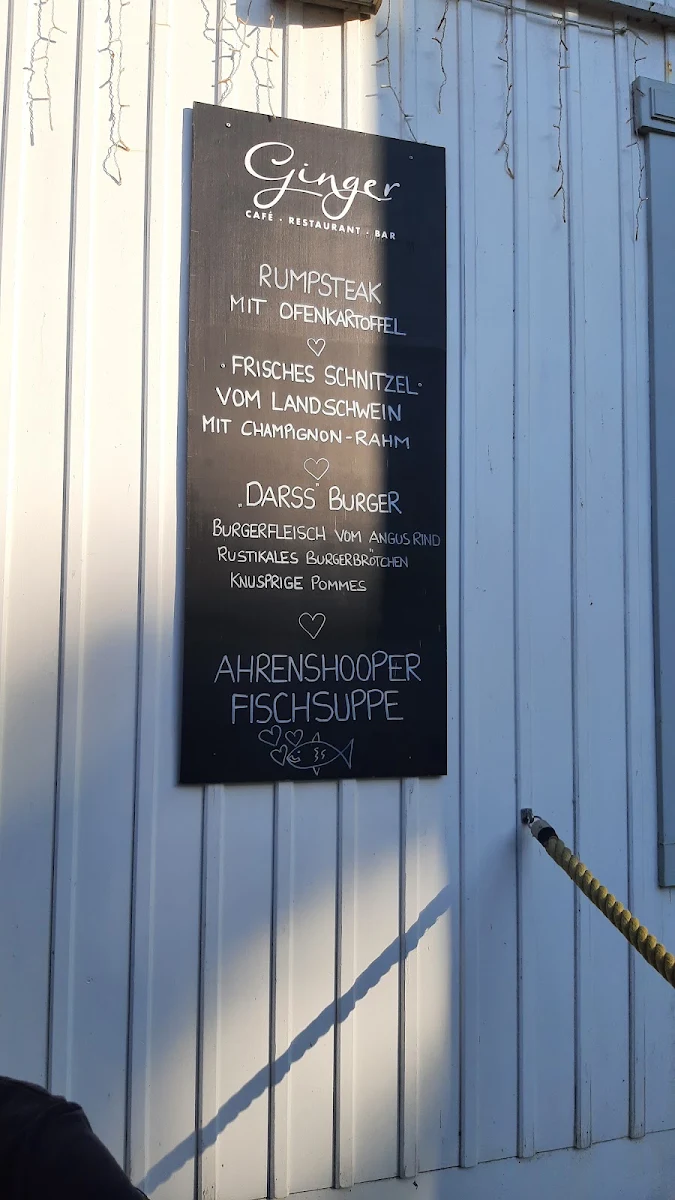 Ginger
CAFÉ · RESTAURANT · BAR
RUMPSTEAK
MIT OFENKARTOFFEL
· FRISCHES SCHNITZEL ·
VOM LANDSCHWEIN
MIT CHAMPIGNON-RAHM
„DARSS" BURGER
BURGERFLEISCH VOM ANGUS RIND
RUSTIKALES BURGERBRÖTCHEN
KNUSPRIGE POMMES
AHRENSHOOPER
FISCHSUPPE